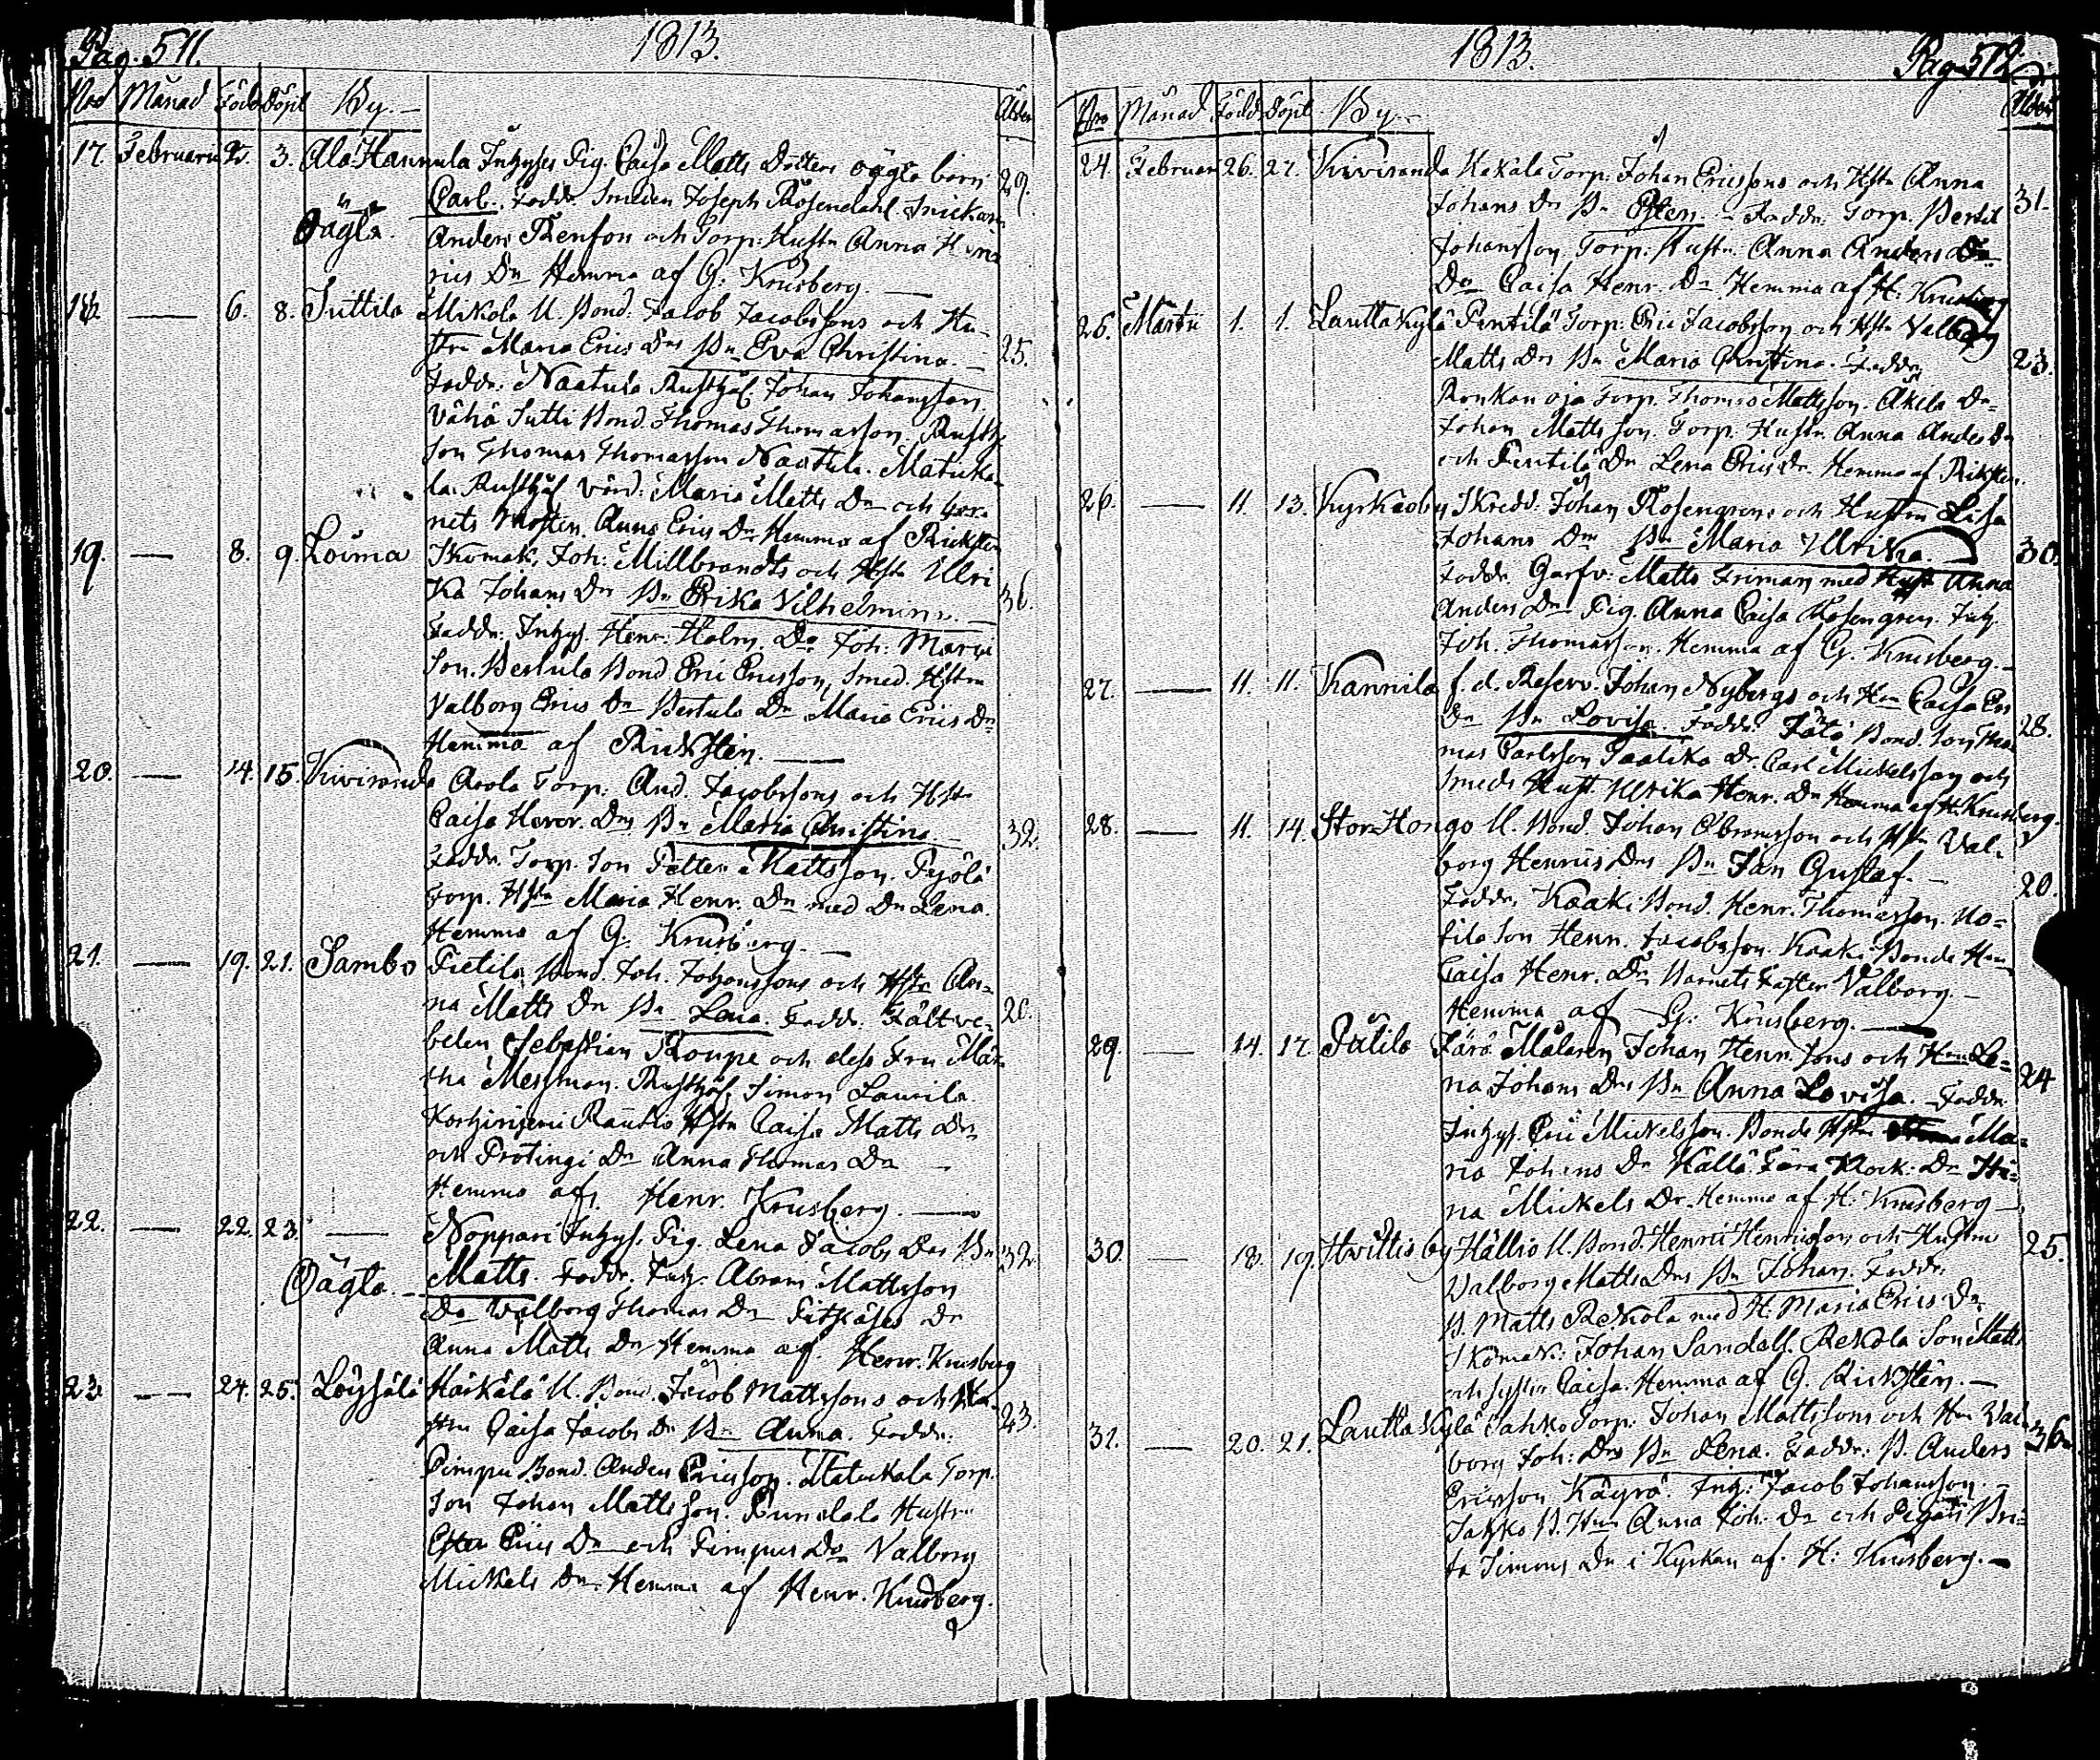 Pag. 511. 1813.
Nro Månad Född Döpt By. Ålder
17. Februarii 2. 3. Ala Hannula Inhyses Pig. Caisa Matts Dotters oägta barn 29.
Carl. Faddr. Smeden Joseph Rosendahl Snickaren
Oägta. Anders Renfors och Torp. Hustr. Anna Hen-
rics Dr Hemma af G. Krusberg.
18. — 6. 8. Suttila Mikola U. Bond. Jacob Jacobssons och Hu-
strs Maria Erics Drs Bn Eva Christina. 25.
Faddr. Naatula Rusthål. Johan Johansson
Vähä Sutti Bond. Thomas Thomasson. Rusth.
Son Thomas Thomasson Naatula. Matuka-
la Rusthål. värd. Maria Matts Dr och bar-
nets Moster Anna Erics Dr Hemma af Rickstén
19. — 8. 9. Loima Skomak. Joh. Millbrandts och Hstr Ulri
ka Johans Drs Bn Erika Vilhelmina. 36.
Faddr. Inhys. Henr. Holm. Do Joh. Matts
Son. Bertula Bond Eric Ericsson, Smed. Hstrn
Valborg Erics Dr Bertula Dr Maria Erics Dr
Hemma af Rickstén.
20. — 14. 15. Kiviranda Arola Torp. And. Jacobssons och Hstr
Caisa Henr. Drs Bn Maria Christina. 32.
Faddr. Torp. Son Petter Mattsson. Pyölä
Torp. Hstr Maria Henr. Dr med Dr Lena.
Hemma af G. Krusberg.
21. — 19. 21. Sambo Pietila Bond. Joh. Johanssons och Hstr An-
na Matts Dr Bn Lena. Faddr. Fältwe- 26.
belen Sebastian Roupe och dess Fru Mär-
tha Messman. Rusthål. Simon Laurila
Rautio Hstr Caisa Matts Dr
och Protingi Dr Anna Thomas Dr
Hemma af Henr. Krusberg.
22. — 22. 23. — Noppari Inhys. Pig. Lena Jacobs Drs Bn 32.
Oägta. Matts. Faddr. Inh. Abram Mattsson
Do Valborg Thomas Dr Dr
Anna Matts Dr Hemma af Henr. Krusberg
23. — 24. 25. Löysälä Häikälä U. Bond. Jacob Mattssons och Hu-
strs Caisa Jacobs Dr Bn Anna. Faddr. 23.
Pimpu Bond. Anders Ericsson. Matukala Torp.
Son Johan Mattsson. Rundala Hustr
Ester Erics Dr och Pimpus Dr Valborg
Mickels Dr. Hemma af Henr. Krusberg.
1813. Pag. 512.
Nro Månad Född Döpt By. Ålder
24. Februari 26. 27. Kiviranda Kakala Torp. Johan Ericssons och Hstr Anna 31.
Johans Dr Bn Faddr. Torp. Bertil
Johansson Torp. Hustr. Anna Anders Dr
Do Caisa Henr. Dr Hemma af H. Krusberg
25. Martii 1. 1. Lauttakylä Pentilä Torp. Eric Jacobsson och Hstr Valborg
Matts Drs Bn Maria Christina. Faddr. 23.
Ronkan oja Torp. Thomas Mattsson. Äkilä Dr
Johan Mattsson. Torp. Hustr. Anna Anders Dr
och Pentilä Dr Lena Erics Dr. Hemma af Rickstén.
26. — 11. 13. Kyrkoby Skredd. Johan Rosengrens och Hustru Lisa
Johans Drs Bn Maria Ullrika. 30.
Faddr. Garfv. Matts Friman med Hustr Anna
Anders Dr Pig. Anna Caisa Rosengren. Inh.
Joh. Thomasson. Hemma af G. Krusberg.
27. — 11. 11. Kannila f. d. Reserv. Johan Nybergs och Hu Caisa Eri
Dr Bn Lovisa. Faddr. Bond. Son Tho- 28.
mas Carlsson Paatika Dr. Carl Mickelsson och
Smeds Hust. Ulrika Henr. Dr Hemma af H. Krusberg.
28. — 11. 14. Stor Hongo U. Bond. Johan Abramsson och Hstr Val-
borg Henrics Drs Bn Jan Gustaf. 20.
Faddr. Kaaki Bond. Henr. Thomasson. Uo-
tila Son Henr. Jacobsson. Kaaki Bonde Hu
Caisa Henr. Dr. Barnets Faster Valborg.
Hemma af G. Krusberg.
29. — 14. 17. Sulilo Färö Målaren Johan Henr. Sons och Hu Le- 24
na Johans Drs Bn Anna Lovisa. Faddr
Inhys. Eric Mickelsson. Bonde Hstr Ma-
ria Johans Dr Källä. Klock. Dr Sti-
na Mickels Dr. Hemma af H. Krusberg
30. — 18. 19. Hvittis by Hällio U. Bond. Henric Henricsson och Hustru 25.
Valborg Matts Drs Bn Johan. Faddr.
B. Matts Rekola med H. Maria Erics Dr
Skomak. Johan Sandall. Rekola Son Matts
och Syster Caisa. Hemma af G. Rickstén.
31. — 20. 21. Lauttakylä Sahko Torp. Johan Mattssons och Hu Val- 36.
borg Joh. Drs Bn Lena. Faddr. B. Anders
Ericsson Käyrä. Inh. Jacob Johansson.
Sahko B. Hu Anna Joh. Dr och Pigan Bri-
ta Simons Dr i Kyrkan af H. Krusberg.